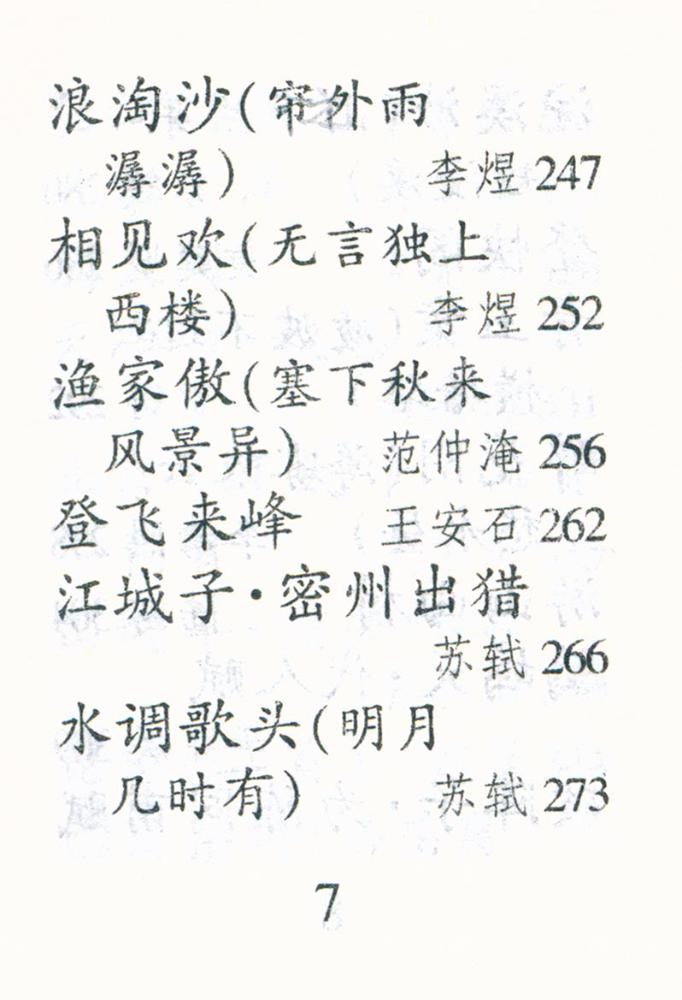 浪淘沙(帘外雨
潺潺) 李煜 247
相见欢(无言独上
西楼) 李煜 252
渔家傲(塞下秋来
风景异) 范仲淹 256
登飞来峰 王安石 262
江城子·密州出猎
苏轼 266
水调歌头(明月
几时有) 苏轼 273
7